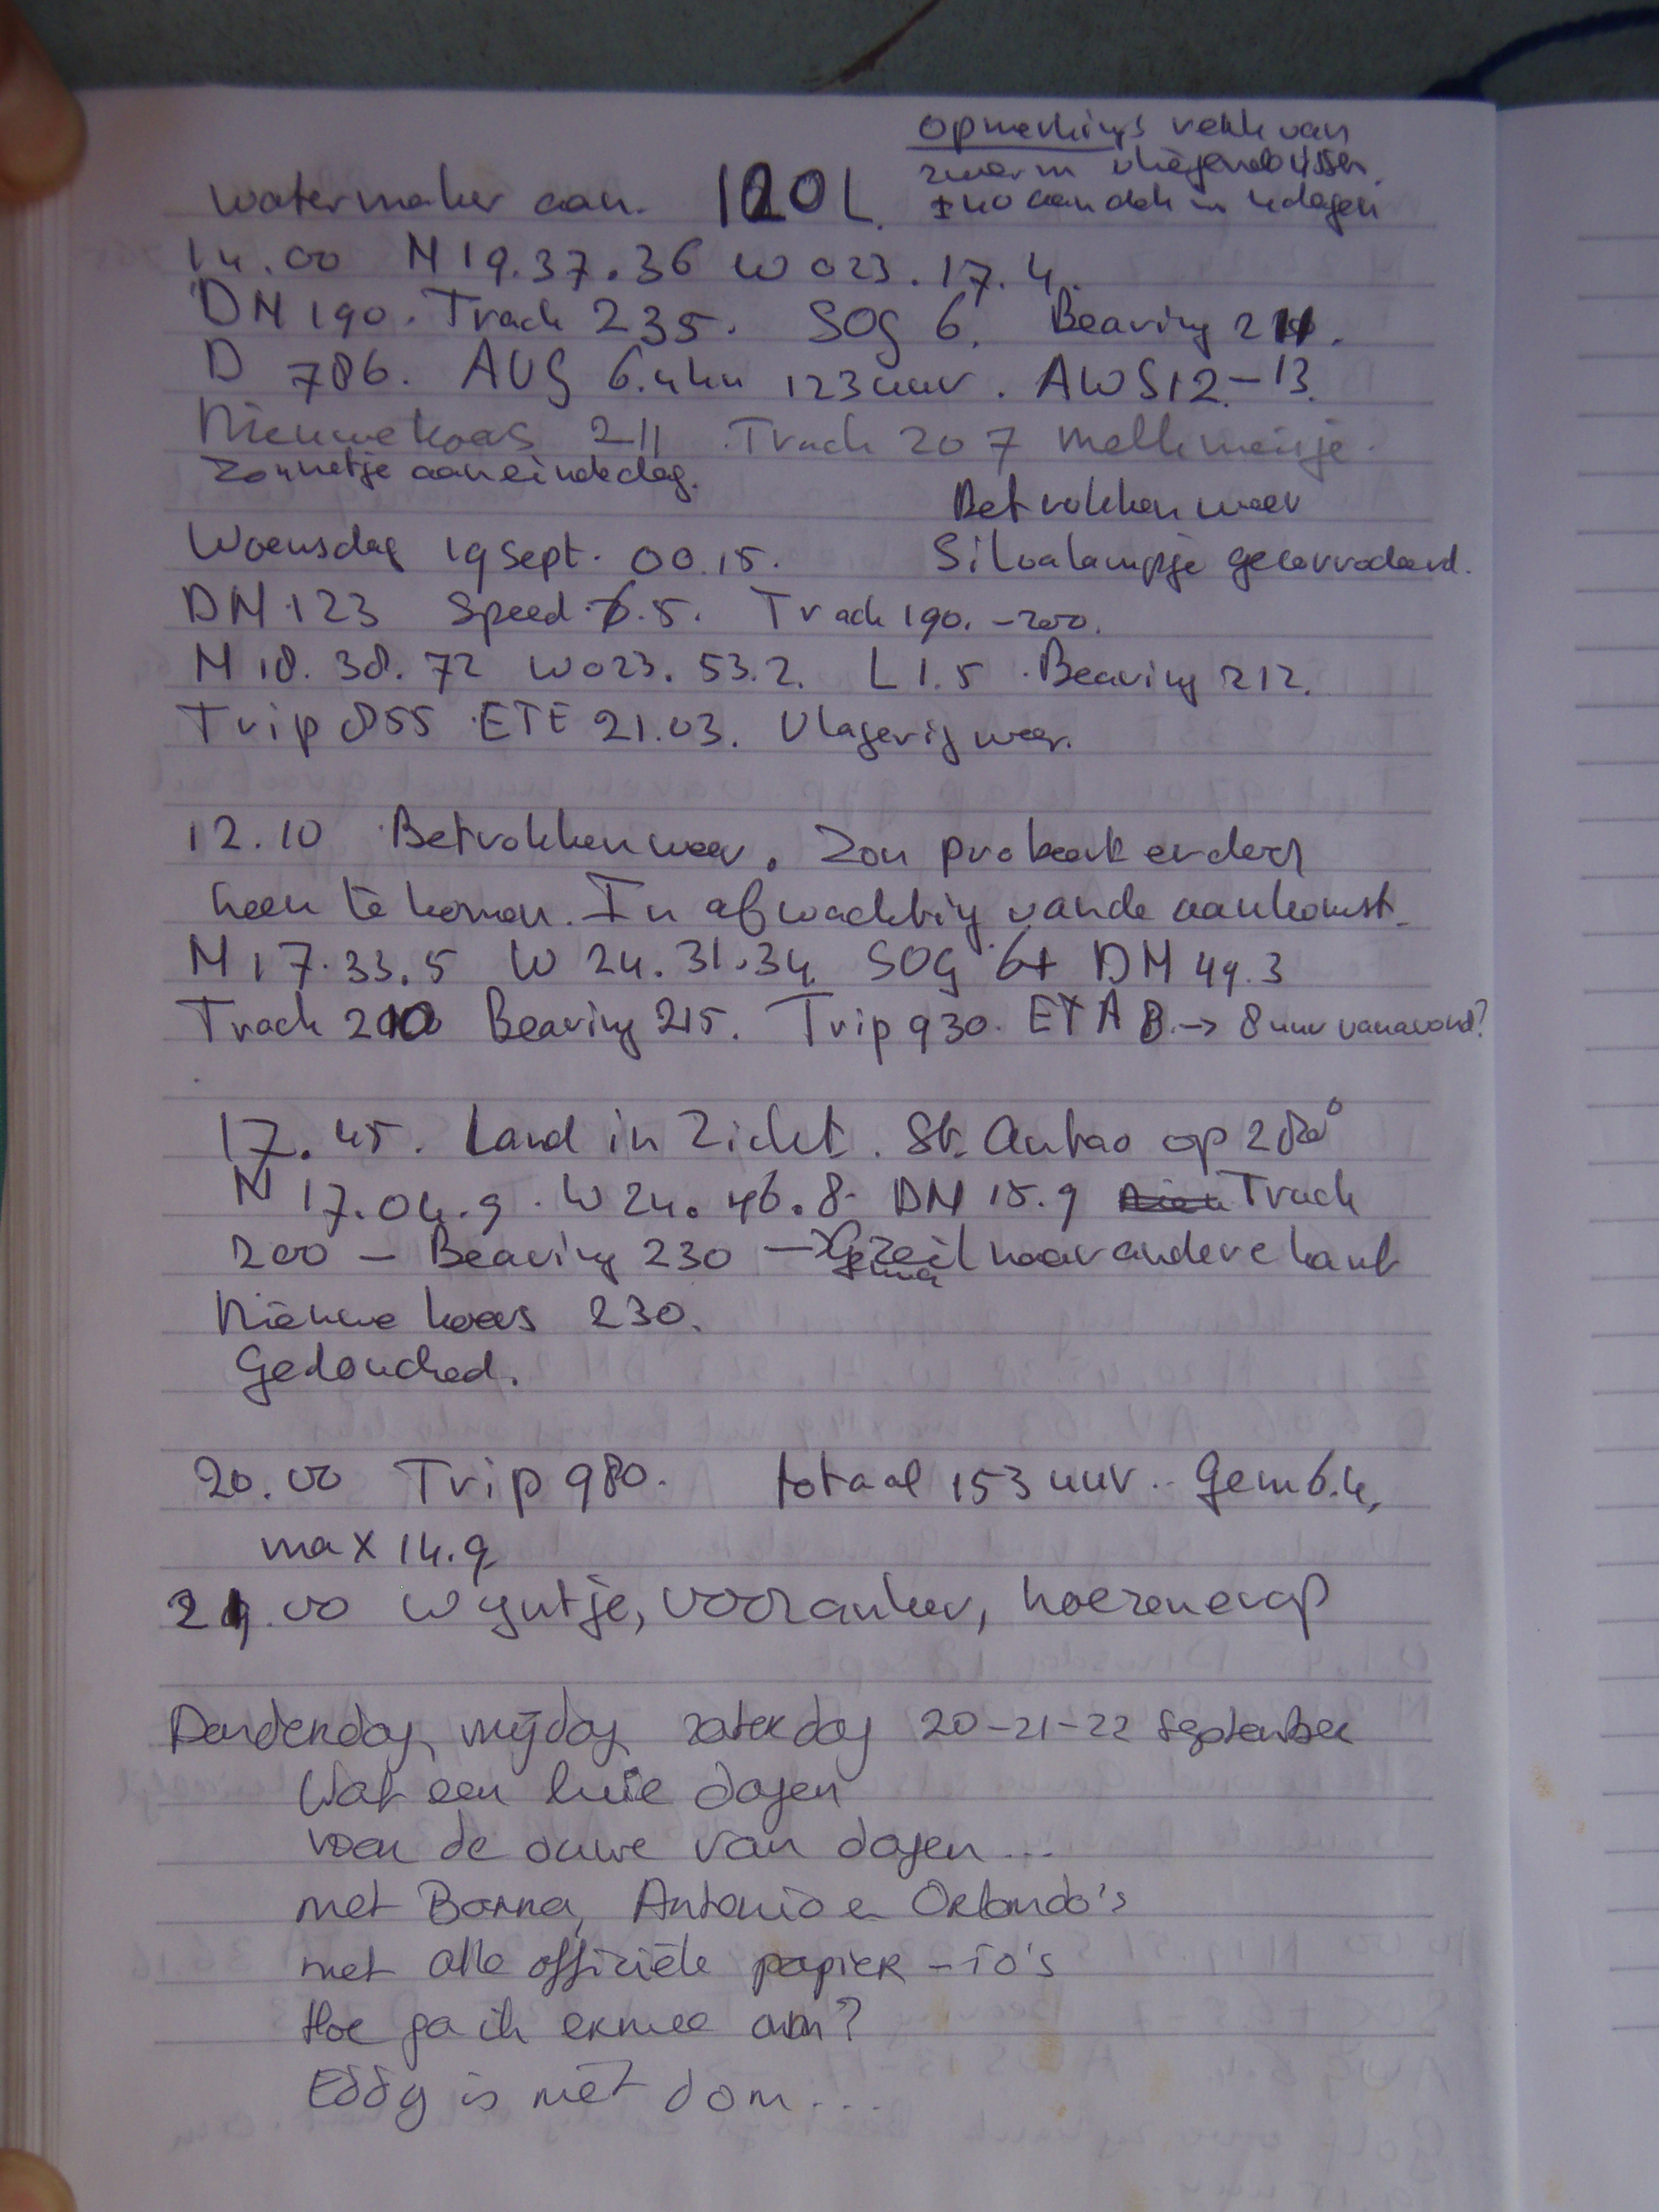 opmerkings vehh van
zwerm vliegende vissen.
± 40 aan dek in 4 dagen
watermaker aan. 120 L.
14.00 N 19.37.36 W 023.17.4.
DN 190. Track 235. SOG 6. Bearing 211.
D 786. AVG 6.4 kn 123 uur. AWS 12-13.
Nieuwe koers 211 . Track 207 melkmeisje.
Zonnetje aan einde dag.
Betrokken weer
Woensdag 19 sept. 00.15. Silvalampje gecorrodeerd.
DN.123 Speed.6.5. Track 190.-200.
N 18.38.72 W 023.53.2. L 1.5 . Bearing 212.
Trip 855 .ETE 21.03. Vlagerig weer.
12.10 Betrokken weer. Zon probeert er door
heen te komen. In afwachting van de aankomst.
N 17.33.5 W 24.31.34 SOG 6+ DN 49.3
Track 210 Bearing 215. Trip 930. ETA 8.-> 8 uur vanavond?
17.45. Land in Zicht. St. Antao op 280°
N 17.04.9 . W 24.46.8. DN 15.9 Track
200 - Bearing 230 -> Genua Zeil naar andere kant
Nieuwe koers 230.
Gedouched.
20.00 Trip 980. totaal 153 uur.. Gem 6.4,
max 14.9
21.00 Wijntje, voor anker, hoezen erop
Donderdag, vrijdag, zaterdag 20-21-22 september
Wat een luie dagen
voor de ouwe van dagen...
met Barra, Antonio en Orlando's
met alle officiële papier-io's
Hoe ga ik ermee om?
Eddy is niet dom...